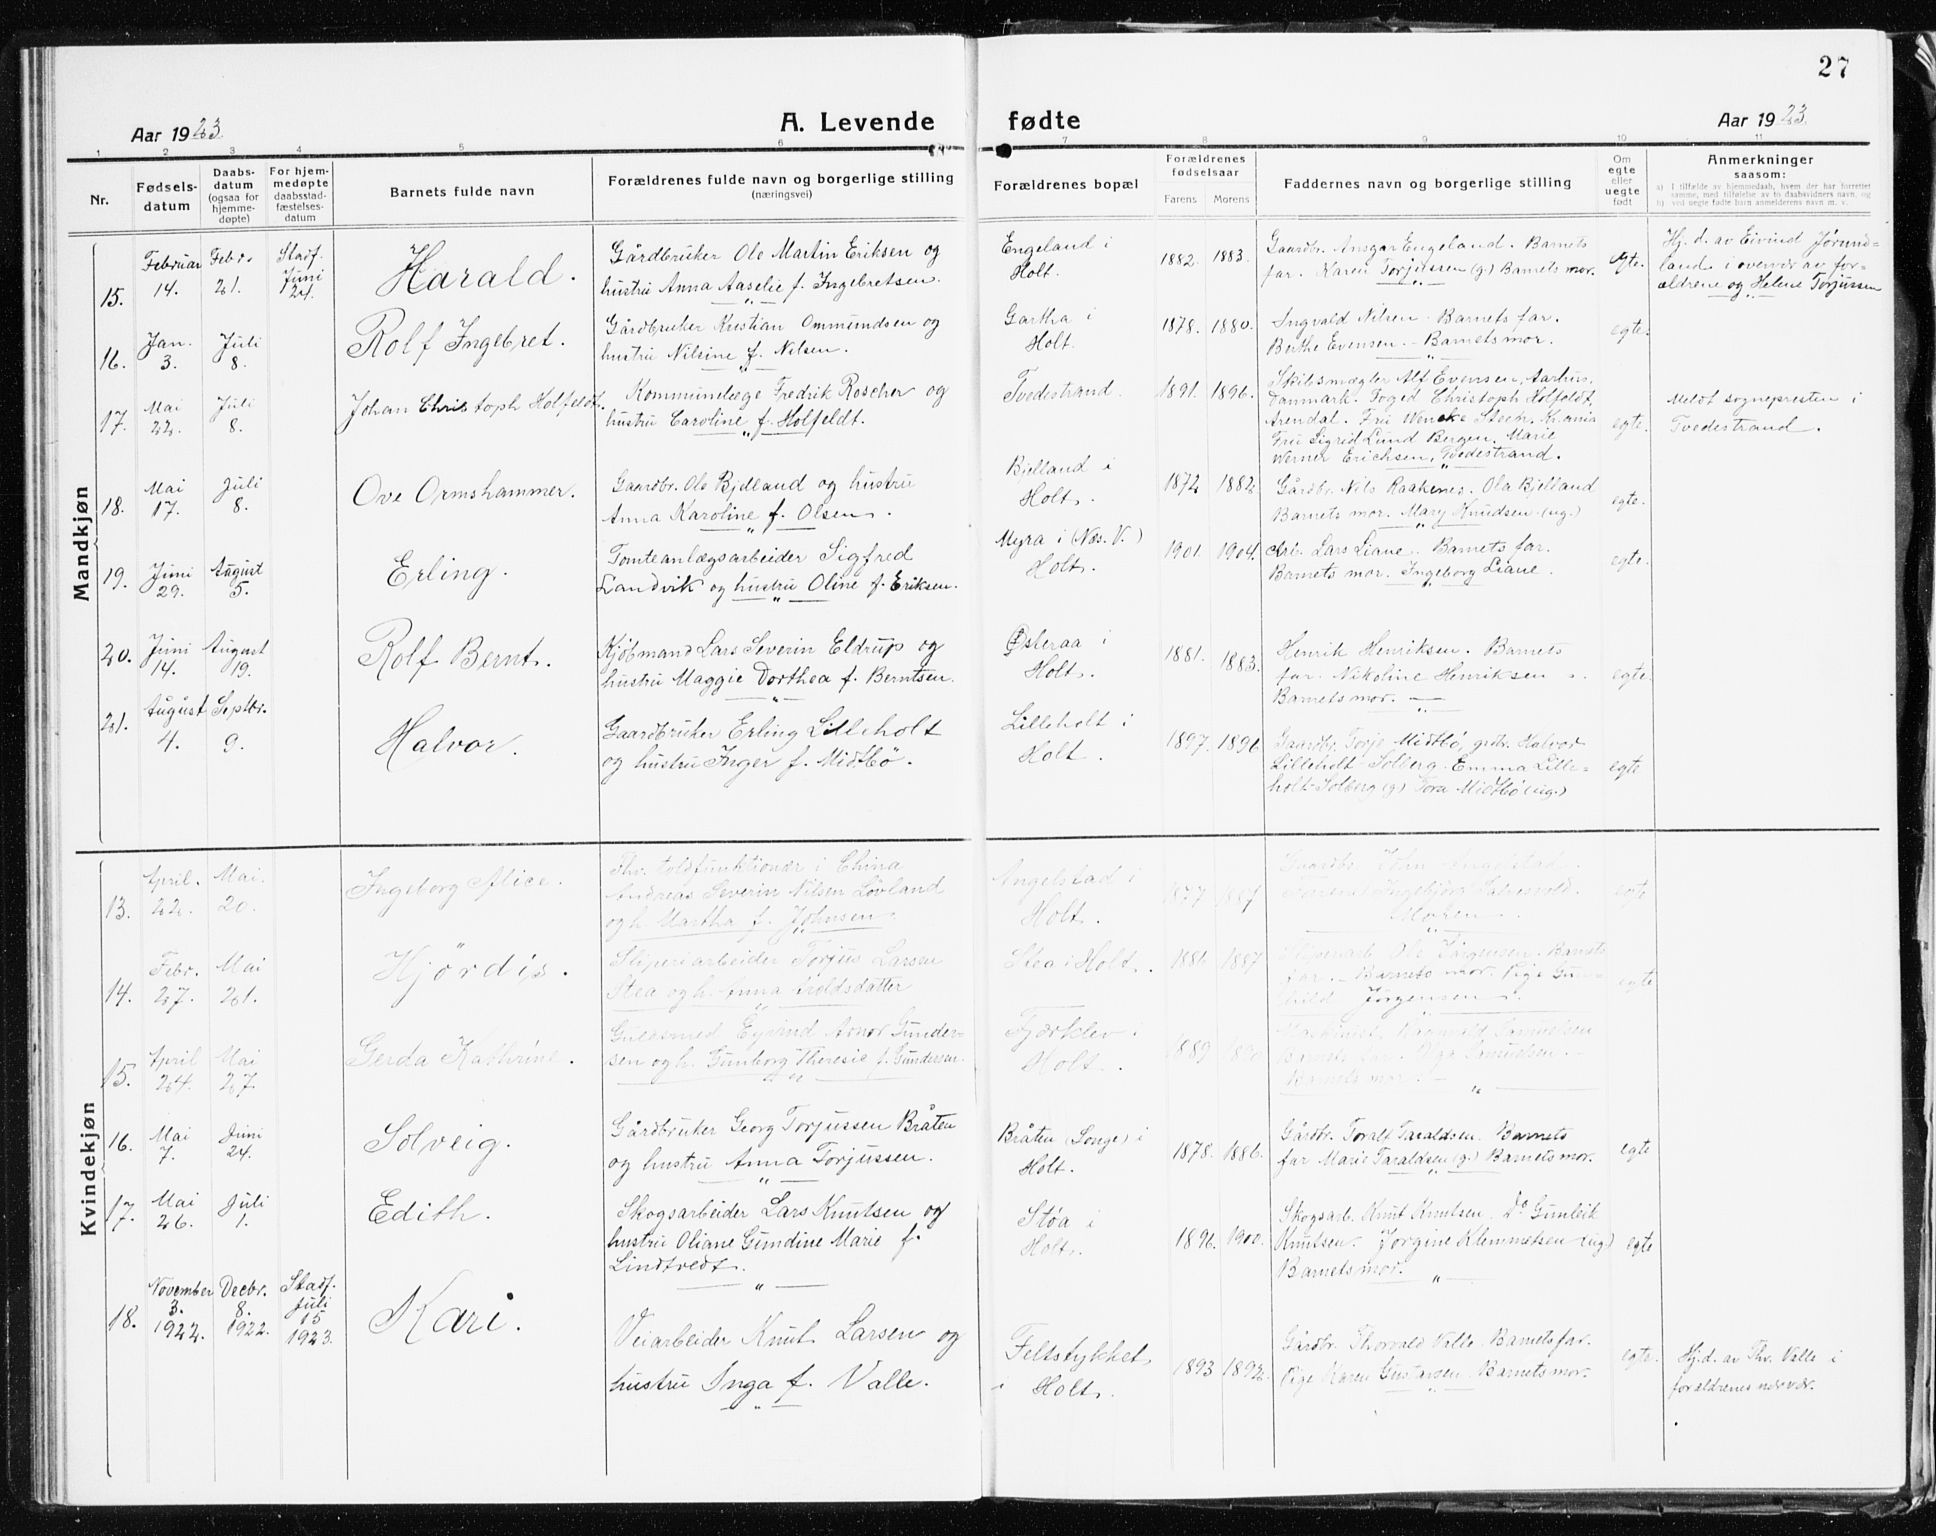 27
Aar 1923.
A. Levende fødte
Aar 1923.
1 2 3 4 5 6 7 8 9 10 11
Nr.
Fødsels-
datum
Daabs-
datum
(ogsaa for
hjemme-
døpte)
For hjem-
medøpte
daabsstad-
fæstelses-
datum
Barnets fulde navn
Forældrenes fulde navn og borgerlige stilling
(næringsvei)
Forældrenes bopæl
Forældrenes
fødselsaar
Farens Morens
Faddernes navn og borgerlige stilling
Om
egte
eller
uegte
født
Anmerkninger
saasom:
a) I tilfælde av hjemmedaab, hvem der har forrettet
samme, med tilføielse av to daabsvidners navn, og
b) ved uegte fødte barn anmelderens navn m. v.
Mandkjøn
15.
Februar
14.
Febr.
21.
Stadf.
Juni
24.
Harald.
Gårdbruker Ole Martin Eriksen og
hustru Anna Aaselie f. Ingebretsen.
Engeland i
Holt.
1882. 1883.
Gaardbr. Ansgar Engeland. Barnets
far. Karen Torjussen (g.) Barnets mor.
egte.
Hj. d. av Eivind Jørund-
land i overvær av for-
ældrene og Helene Torjussen
16.
Jan.
3.
Juli
8.
Rolf Ingebret.
Gårdbruker Kristian Ommundsen og
hustru Nilsine f. Nilsen.
Gartha i
Holt.
1878. 1880.
Ingvald Nilsen. Barnets far.
Berthe Evensen. Barnets mor.
egte.
17.
Mai
22.
Juli
8.
Johan Christoph Holfeldt.
Kommunelæge Fredrik Roscher og
hustru Caroline f. Holfeldt.
Tvedestrand.
1891. 1896.
Skibsmægler Alf Evensen, Aarhus,
Danmark. Foged Christoph Holfeldt,
Arendal. Fru Wencke Steen, Kr.ania
Fru Sigrid Lund Bergen. Marie
Werner Erichsen, Tvedestrand.
egte.
Meldt sognepresten i
Tvedestrand.
18.
Mai
17.
Juli
8.
Ove Ormshammer.
Gaardbr. Ole Bjelland og hustru
Anna Karoline f. Olsen.
Bjelland i
Holt.
1872 1882
Gårdbr. Nils Raakenes. Ola Bjelland
Barnets mor. Mary Knudsen (ug.)
egte.
19.
Juni
29.
August
5.
Erling.
Tomteanlægsarbeider Sigfred
Landvik og hustru Oline f. Eriksen.
Myra i (Næs. V.)
Holt.
1901. 1904.
Lars Liane. Barnets far.
Barnets mor. Ingeborg Liane.
egte.
20.
Juni
14.
August
19.
Rolf Bernt.
Kjøbmand Lars Severin Eldrup og
hustru Maggie Dorthea f. Berntsen.
Østeraa i
Holt.
1881. 1883.
Henrik Henriksen. Barnets
far. Nikoline Henriksen.
Barnets mor.
egte.
21.
August
4.
Septbr.
9.
Halvor.
Gaardbruker Erling Lilleholt
og hustru Inger f. Midtbö.
Lilleholt i
Holt.
1897. 1896.
Gaardbr. Torje Midtbö, Halvor
Lilleholt Solberg. Emma Lille-
holt-Solberg (g) Tora Midtbö (ug.)
egte
Kvindekjøn
13.
April.
22.
Mai.
20.
Ingeborg Alice.
Fhv. toldfunktionær i China
Andreas Severin Nilsen Lövland
og h. Martha f. Johnsen.
Angelstad i
Holt.
1877 1887
Gaardbr. John Angelstad
egte
14.
Febr.
27.
Mai
21.
Hjördis.
Sliperiarbeider Torjus Larsen
Stea og h. Anna Aroldsdatter
Stea i Holt.
1881. 1887
Sliperiarb. Ole Jörgensen. Barnets
far. Barnets mor. Pige Gun-
hild Jörgensen.
egte
15.
April
24.
Mai
27.
Gerda Kathrine.
Guldsmed Eyvind Gunder-
sen og h. Gunborg Theresie f. Gundersen.
Fjærkleiv i
Holt.
1889 1890
Samuelsen
Barnets far. Samuelsen.
Barnets mor.
16.
Mai
7.
Juni
24.
Solveig.
Gårdbruker Georg Torjussen Bråten
og hustru Anna Torjussen.
Bråten (Songe) i
Holt.
1878. 1886.
Gårdbr. Toralf Taraldsen. Barnets
far Marie Taraldsen (g.) Barnets mor.
egte
17.
Mai
26.
Juli
1.
Edith.
Skogsarbeider Lars Knutsen og
hustru Oliane Gundine Marie f.
Lindtvedt.
Støa i
Holt.
1896. 1900.
Skogsarb. Knut Knutsen. Do Gunleik
Knutsen. Jorgine Klemmetsen (ug)
Barnets mor.
egte
18.
November
3.
1922.
Decbr.
8.
1922.
Stadf.
Juli
15
1923.
Kari.
Veiarbeider Knut Larsen og
hustru Inga f. Valle.
Feltstykket
i Holt.
1893 1892.
Gårdbr. Thorvald Valle. Barnets far.
Pige Karen Gustavsen. Barnets mor.
egte.
Hj. d. av Thv. Valle i
forældrenes nærvær.